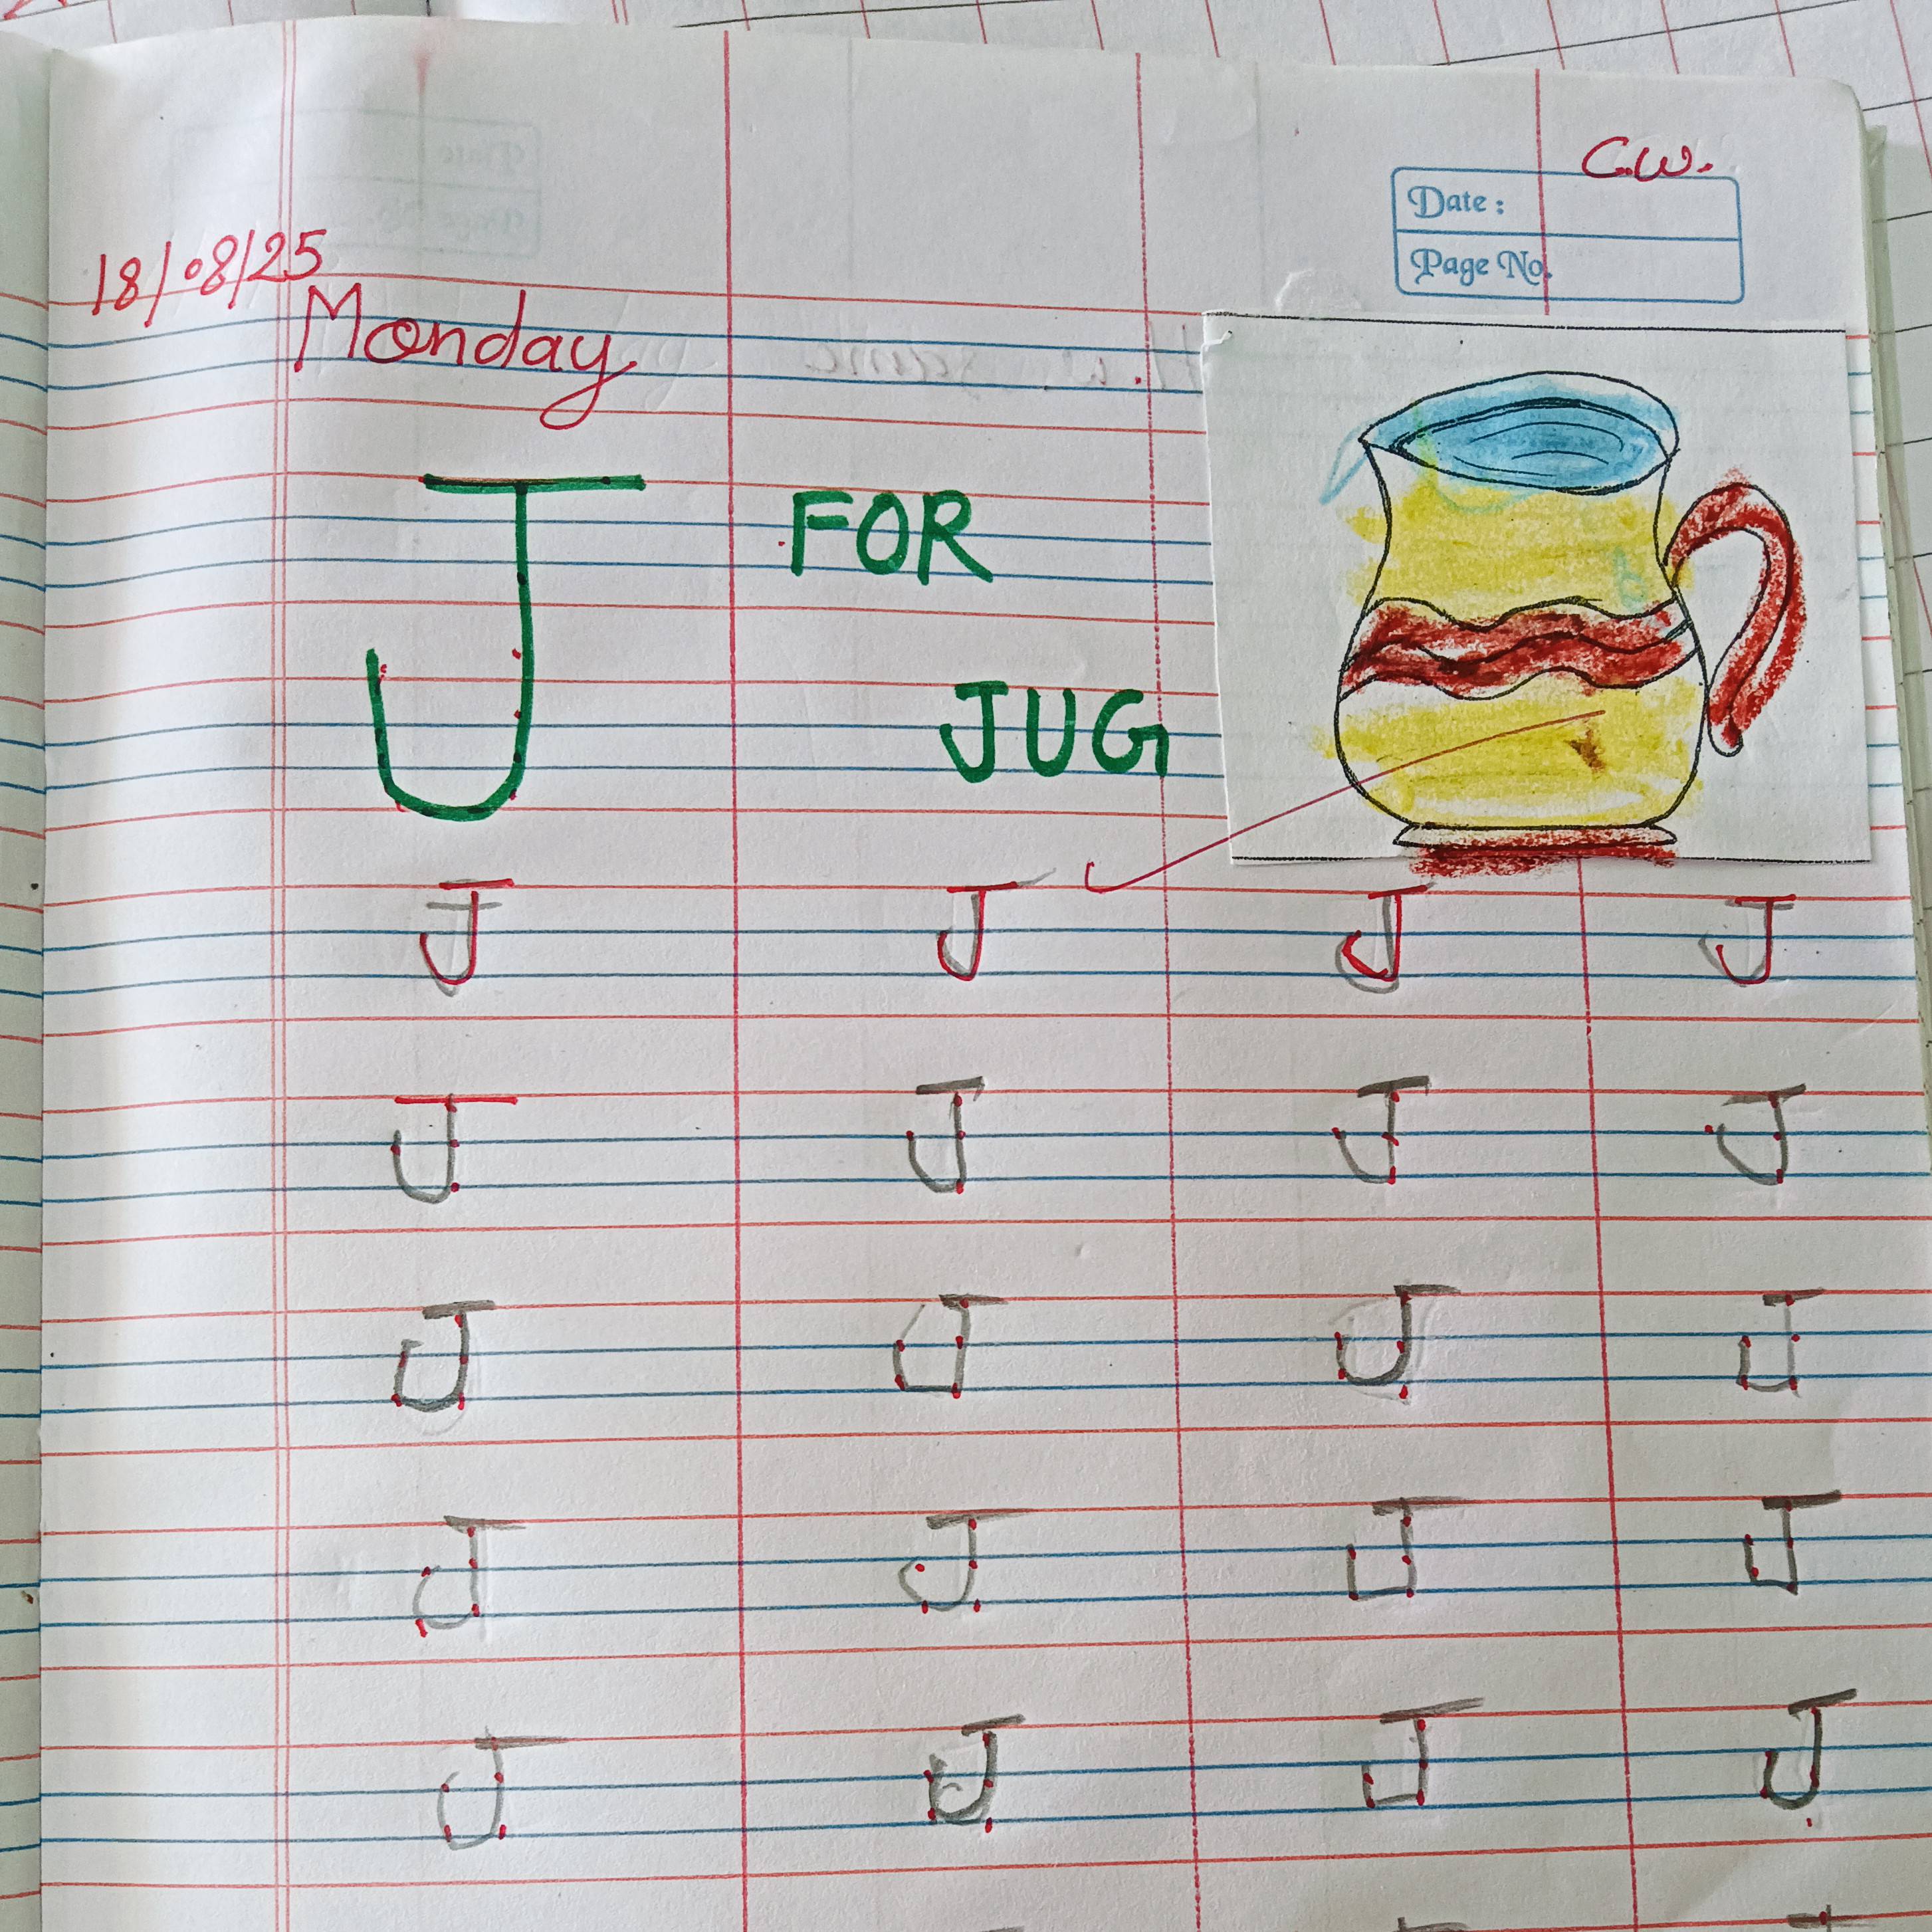 C.W.
Date :
Page No.
18/08/25
Monday
J FOR
JUG
J J J J
J J J J
J J J J
J J J J
J J J J